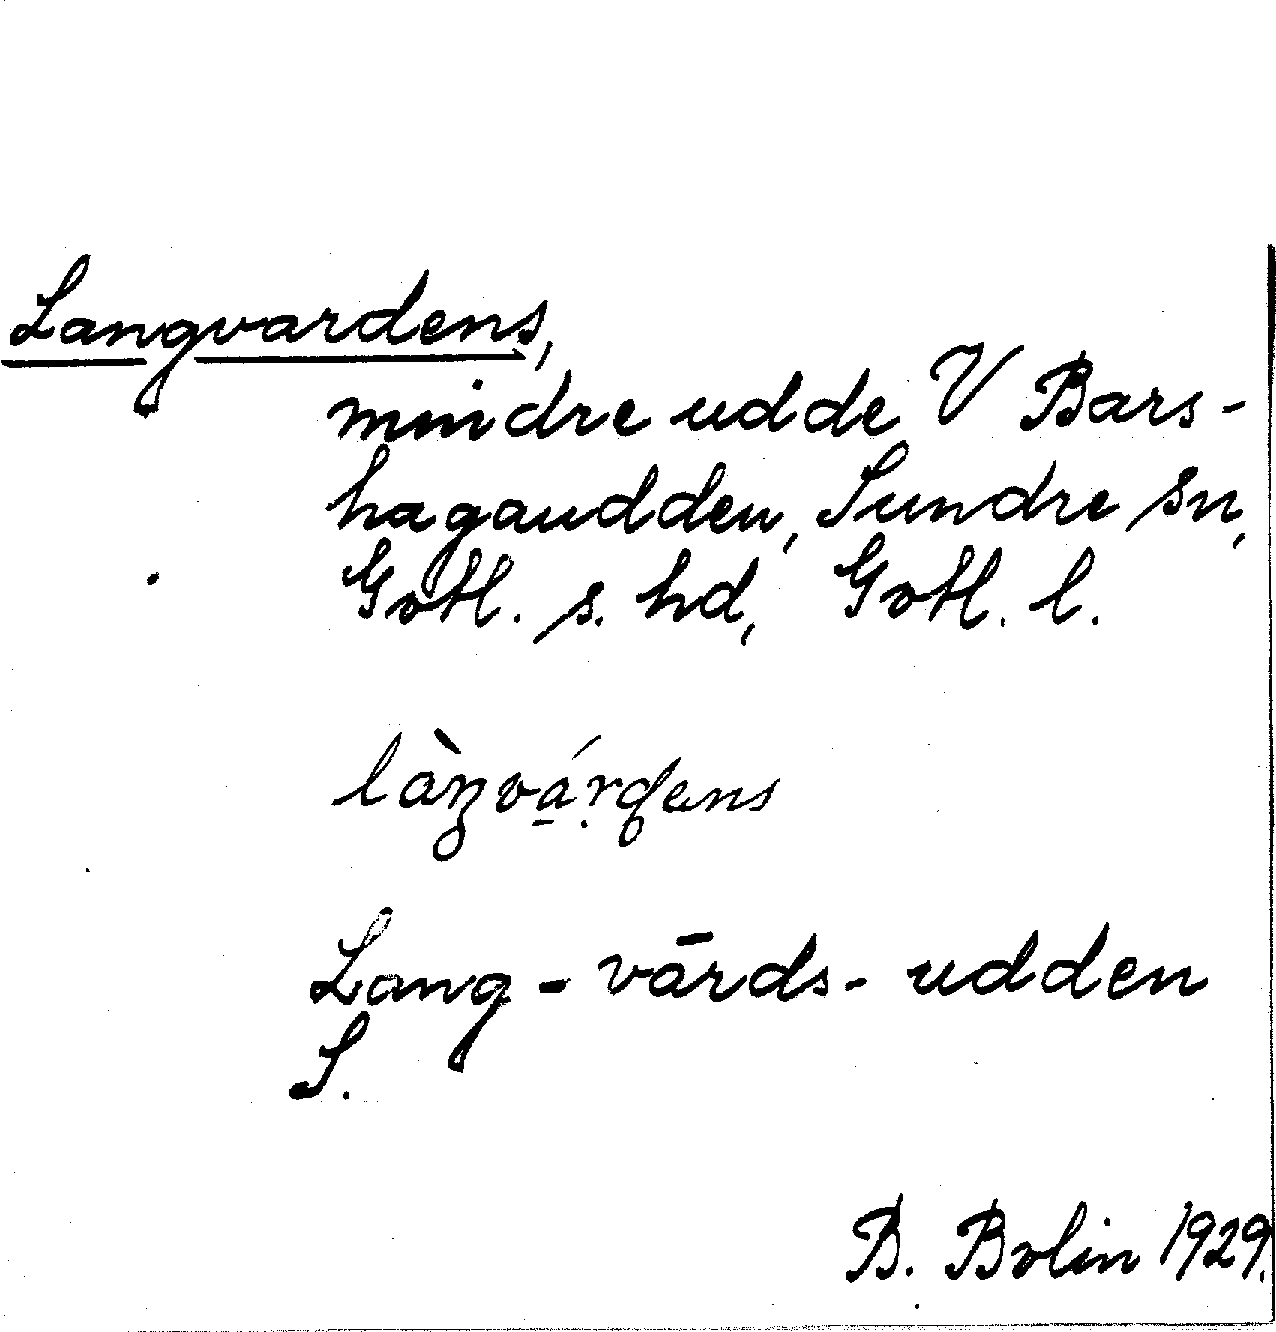 Langvardens,
mindre udde V Bars-
hagaudden, Sundre sn,
Gotl. s. hd, Gotl. l.
Lang-vārds-udden
S.
B. Bolin 1929.